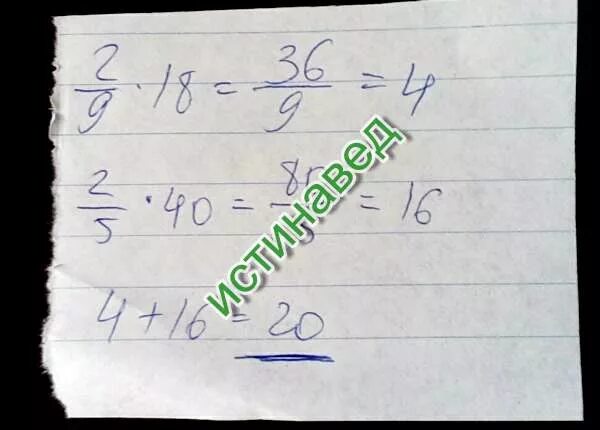 2/9 · 18 = 36/9 = 4
2/5 · 40 = 8 = 16
4 + 16 = 20
истинавед